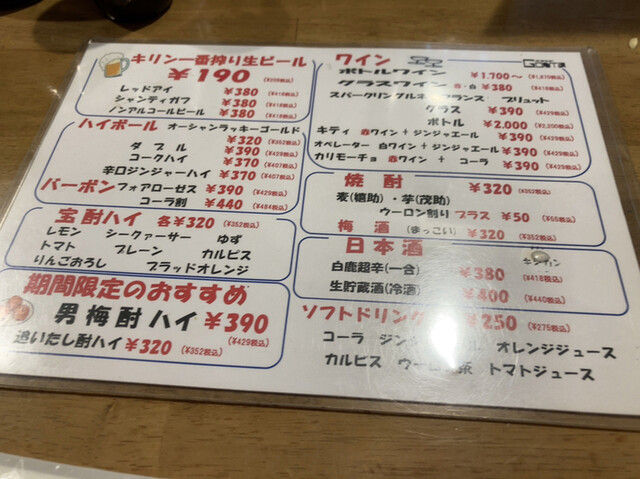 キリン一番搾り生ビール
￥190 (￥209税込)
レッドアイ ￥380 (￥418税込)
シャンディガフ ￥380 (￥418税込)
ノンアルコールビール ￥380 (￥418税込)
ハイボール オーシャンラッキーゴールド
￥320 (￥352税込)
ダブル ￥390 (￥429税込)
コークハイ ￥370 (￥407税込)
辛口ジンジャーハイ ￥370 (￥407税込)
バーボン フォアローゼス ￥390 (￥429税込)
コーラ割 ￥440 (￥484税込)
宝酎ハイ 各￥320 (￥352税込)
レモン シークァーサー ゆず
トマト プレーン カルピス
りんごおろし ブラッドオレンジ
期間限定のおすすめ
男梅酎ハイ ￥390
(￥429税込)
追いだし酎ハイ ￥320 (￥352税込)
ワイン
ボトルワイン ￥1,700～ (￥1,870税込)
グラスワイン 赤・白 ￥380 (￥418税込)
スパークリング ブリュット
グラス ￥390 (￥429税込)
ボトル ￥2,000 (￥2,200税込)
キティ 赤ワイン＋ジンジャエール ￥390 (￥429税込)
オペレーター 白ワイン＋ジンジャエール ￥390 (￥429税込)
カリモーチョ 赤ワイン＋コーラ ￥390 (￥429税込)
焼酎 ￥320 (￥352税込)
麦(嬉助)・芋(茂助)
ウーロン割り プラス ￥50 (￥55税込)
梅酒 (まっこい) ￥320 (￥352税込)
日本酒
白鹿超辛(一合) ￥380 (￥418税込)
生貯蔵酒(冷酒) ￥400 (￥440税込)
ソフトドリンク ￥250 (￥275税込)
コーラ オレンジジュース
カルピス トマトジュース